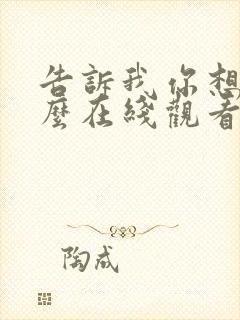 告訴我你想
麼在綫觀看
陶成